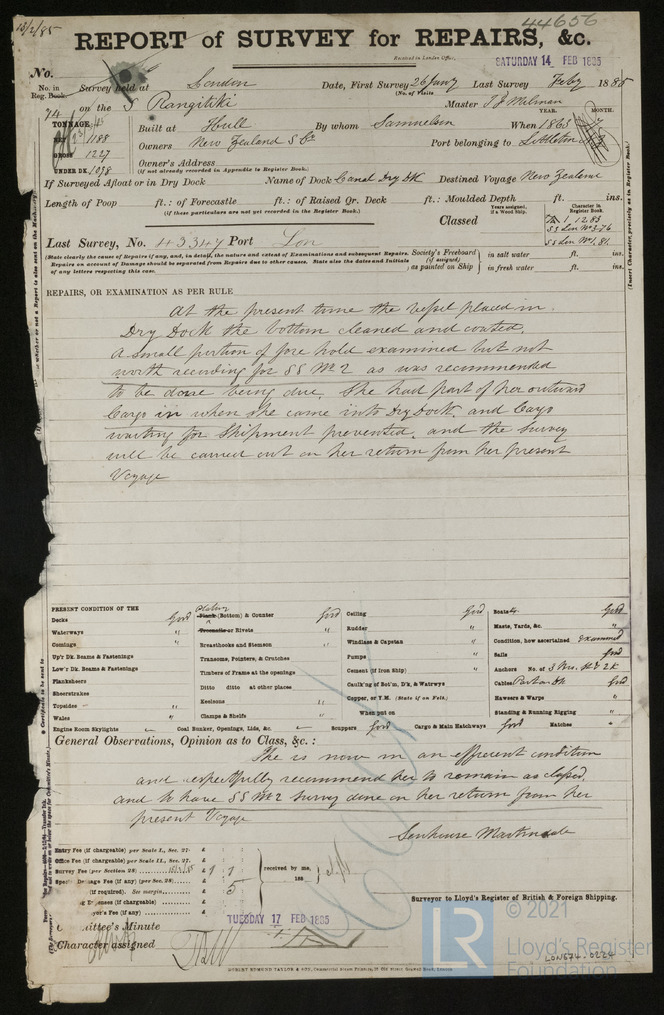 13/2/85
44656
REPORT of SURVEY for REPAIRS, &c.
Received in London Office,
SATURDAY 14 FEB 1885
No.
No. in Reg. Book. Survey held at London Date, First Survey 26 Jany Last Survey Feby 1885
(No. of Visits
74 on the S Rangitiki Master T J Milman
TONNAGE YEAR. MONTH.
NET 1188 Built at Hull By whom Samuelson When 1863
GROSS 1227 Owners New Zealand S Co Port belonging to Lyttleton
UNDER DK. 1098 Owner's Address
(if not already recorded in Appendix to Register Book.)
If Surveyed Afloat or in Dry Dock Name of Dock Canal Dry Dk Destined Voyage New Zealand
Length of Poop ft.: of Forecastle ft.: of Raised Qr. Deck ft.: Moulded Depth ft. ins.
(If these particulars are not yet recorded in the Register Book.)
Classed
Years assigned, if a Wood Ship.
Character in Register Book.
1, 12.83
SS Lon No3-76
SS Lon No1.81
Last Survey, No. 43347 Port Lon
(State clearly the cause of Repairs if any, and, in detail, the nature and extent of Examinations and subsequent Repairs.
Repairs on account of Damage should be separated from Repairs due to other causes. State also the dates and Initials
of any letters respecting this case.
Society's Freeboard (if assigned) as painted on Ship
in salt water ft. ins.
in fresh water ft. ins.
REPAIRS, OR EXAMINATION AS PER RULE
At the present time the vessel placed in
Dry Dock the bottom cleaned and coated.
A small portion of fore hold examined but not
worth recording for SS No 2 as was recommended
to be done being due, She had part of her outward
Cargo in when she came into Dry Dock, and Cargo
waiting for Shipment prevented, and the survey
will be carried out on her return from her present
Voyage
PRESENT CONDITION OF THE
Decks Good
Waterways "
Comings "
Up'r Dk. Beams & Fastenings
Low'r Dk. Beams & Fastenings
Planksheers
Sheerstrakes
Topsides
Wales "
Engine Room Skylights
Plating
Plank (Bottom) & Counter Good
Treenails or Rivets "
Breasthooks and Stemson "
Transoms, Pointers, & Crutches
Timbers of Frame at the openings
Ditto ditto at other places
Keelsons "
Clamps & Shelfs
Coal Bunker, Openings, Lids, &c.
Ceiling Good
Rudder "
Windlass & Capstan "
Pumps "
Cement (if Iron Ship) "
Caulk'ng of Bot'm, D'k, & Watrwys
Copper, or Y.M. (State if on Felt.)
When put on
Scuppers Good Cargo & Main Hatchways Good
Boats 4 Good
Masts, Yards, &c. "
Condition, how ascertained Examined
Sails Good
Anchors No. of 3 Brs. St & 2K
Cables Part on Dk Good
Hawsers & Warps "
Standing & Running Rigging "
Hatches "
General Observations, Opinion as to Class, &c. :
She is now in an efficient condition
and respectfully recommend her to remain as classed
and to have SS No 2 survey done on her return from her
present Voyage
Senhouse Martindale
Entry Fee (if chargeable) per Scale I., Sec. 27. £
Office Fee (if chargeable) per Scale II., Sec. 27. £
Survey Fee (per Section 28) £ 1 : 1
Special Damage Fee (if any) (per Sec. 28) £
(if required). See margin. £ 5
(if chargeable) £
yor's Fee (if any) £
received by me,
188
Surveyor to Lloyd's Register of British & Foreign Shipping.
TUESDAY 17 FEB 1885
Committee's Minute
Character assigned
© 2021
LR
Lloyd's Register
Foundation
LON674-0224